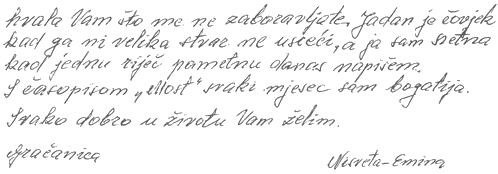 hvala Vam što me ne zaboravljate. Jadan je čovjek
kad ga ni velika stvar ne usreći, a ja sam sretna
kad jednu riječ pametnu danas napišem.
S časopisom „Most" svaki mjesec sam bogatija.
Svako dobro u životu Vam želim.
Gračanica
Nusreta-Emina